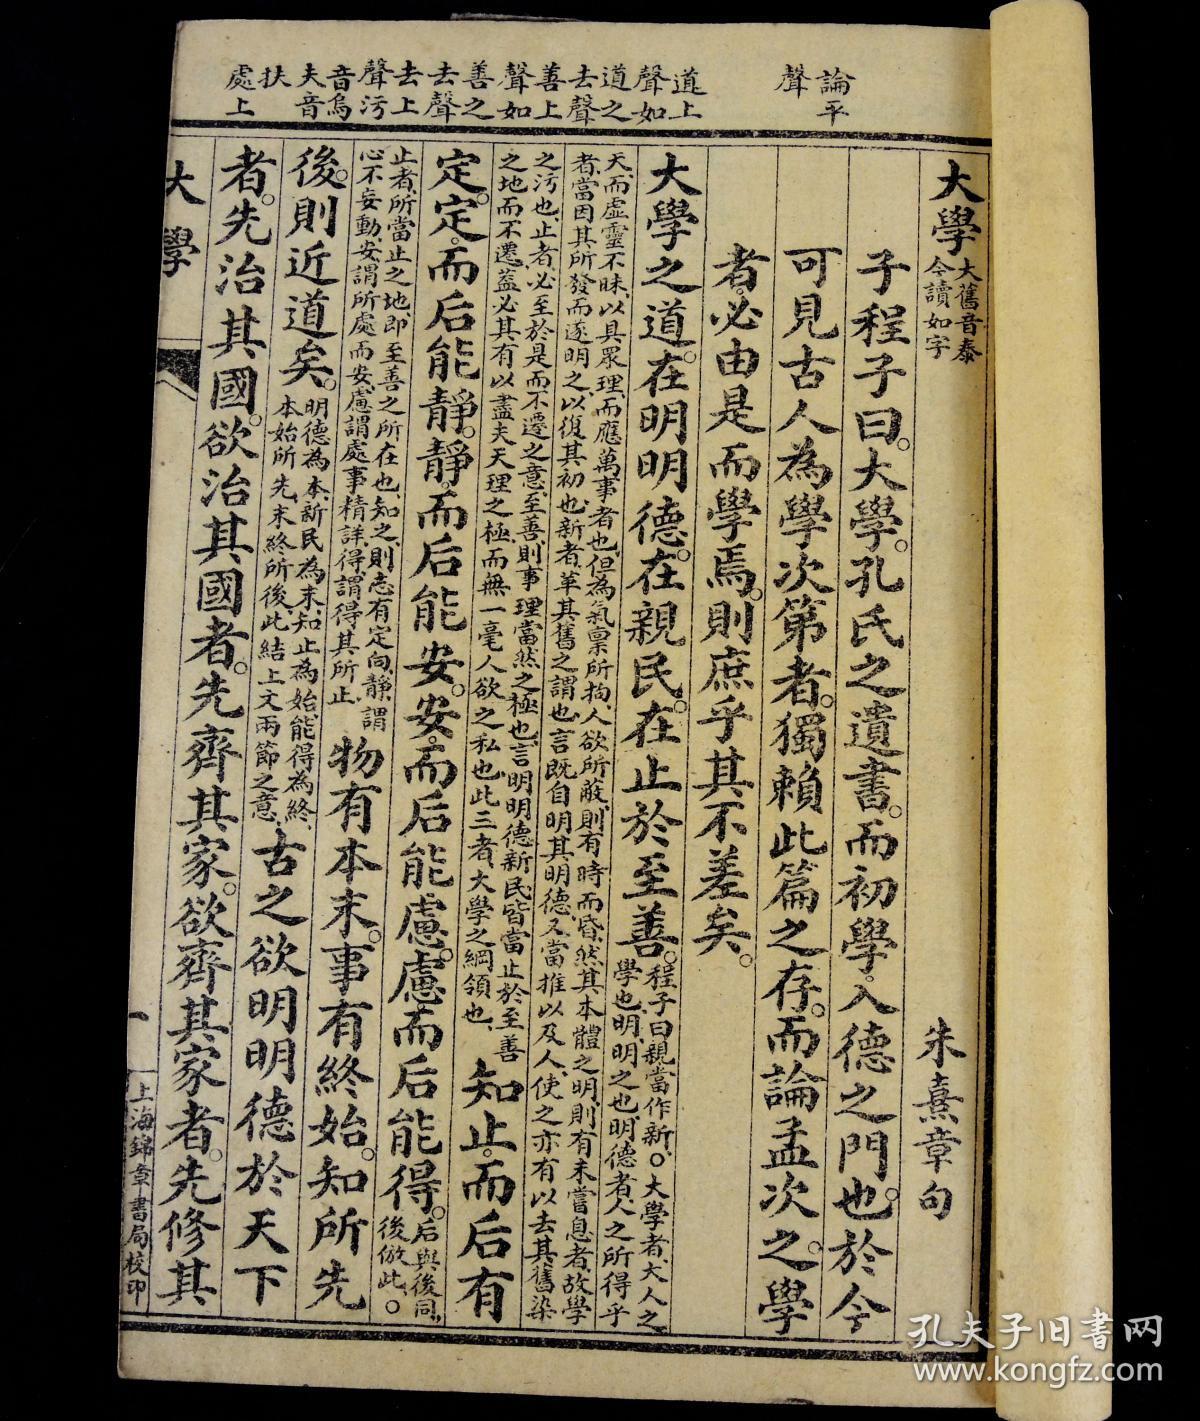 論平
聲
道上
聲如
道之
去聲
善上
聲如
善之
去聲
去上
聲污
音烏
夫音
扶
處上
大學大舊音泰
今讀如字
朱熹章句
子程子曰。大學。孔氏之遺書。而初學。入德之門也。於今
可見古人為學次第者。獨賴此篇之存。而論孟次之。學
者。必由是而學焉。則庶乎其不差矣。
大學之道。在明明德。在親民。在止於至善。程子曰、親當作新、○大學者、大人之
學也、明、明之也、明德者、人之所得乎
天、而虛靈不昧、以具眾理、而應萬事者也、但為氣稟所拘、人欲所蔽、則有時而昏、然其本體之明、則有未嘗息者、故學
者、當因其所發而遂明之、以復其初也、新者、革其舊之謂也、言既自明其明德、又當推以及人、使之亦有以去其舊染
之污也、止者、必至於是而不遷之意、至善、則事理當然之極也、言明明德新民、皆當止於至善
之地而不遷、蓋必其有以盡夫天理之極、而無一毫人欲之私也、此三者、大學之綱領也、
知止。而后有
定。定。而后能靜。靜。而后能安。安。而后能慮。慮而后能得。后與後同、
後倣此。○
止者、所當止之地、即至善之所在也、知之、則志有定向、靜、謂
心不妄動、安、謂所處而安、慮、謂處事精詳、得、謂得其所止、
物有本末。事有終始。知所先
後。則近道矣。明德為本、新民為末、知止為始、能得為終、
本始所先、末終所後、此結上文兩節之意、
古之欲明明德於天下
者。先治其國。欲治其國者。先齊其家。欲齊其家者。先修其
大學
一
上海錦章書局校印
孔夫子旧書网
www.kongfz.com